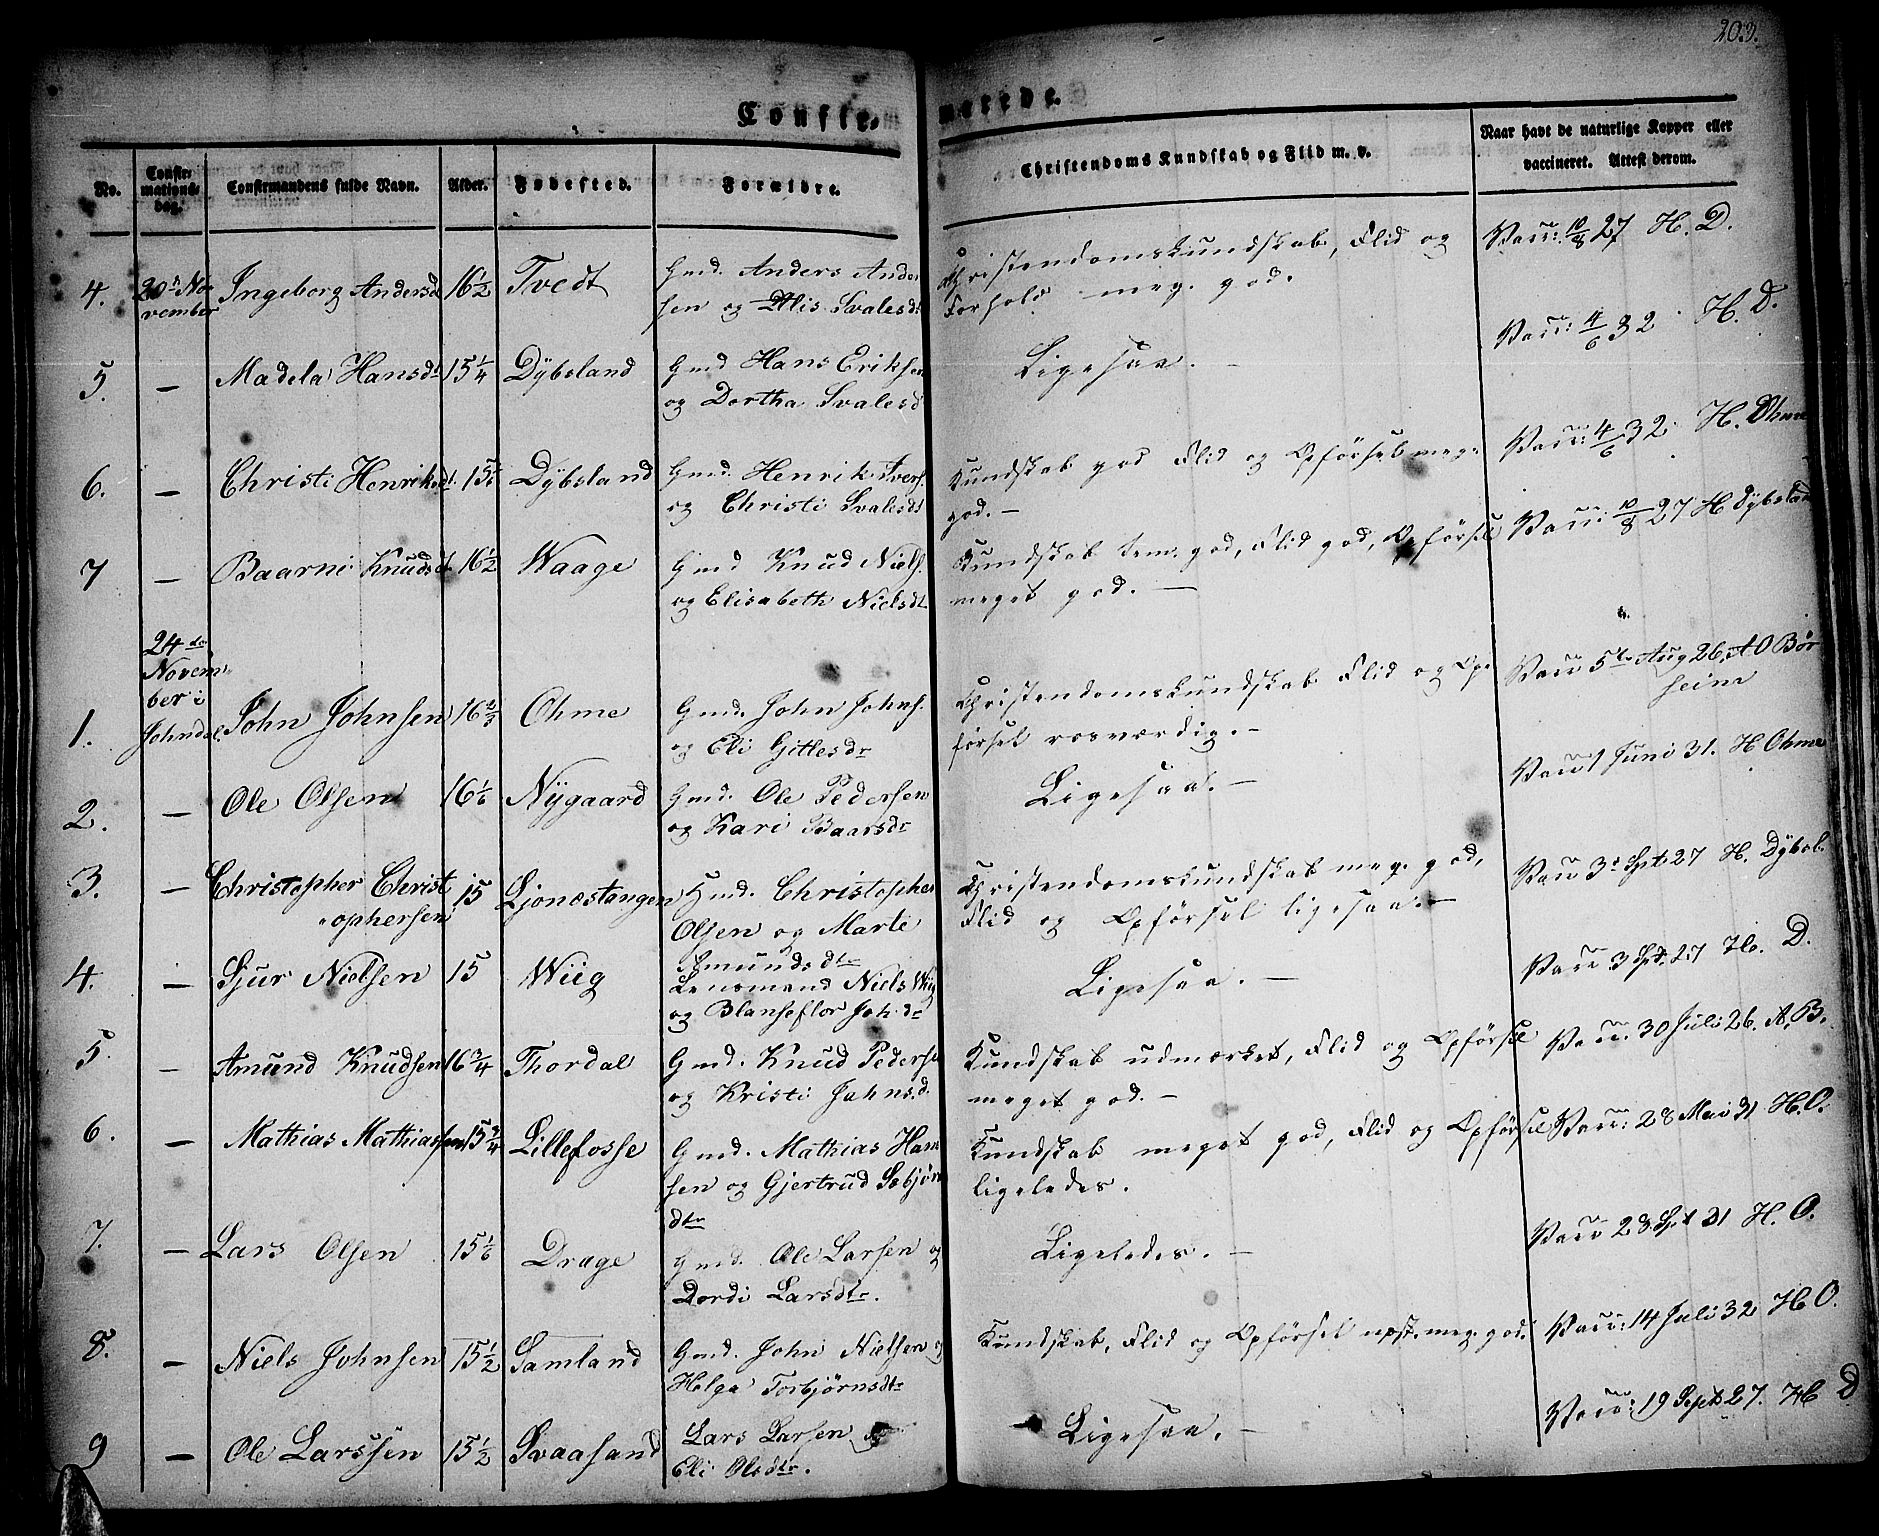 203.
Confir-
marrede.
No.
Confir-
mations-
dag.
Confirmandens fulde Navn.
Alder.
Fødested.
Forældre.
Christendoms Kundskab og Flid m. v.
Naar havt de naturlige Kopper eller
vaccineret. Attest derom.
4.
20de No-
vember
Ingeborg Andersd
16 1/2
Tvedt
Gmd. Anders Ander
sen og Alis Svalesdt
Christendomskundskab, Flid og
Forhold meg. god.
Vacc: 10/8 27 H. D.
5.
—
Madela Hansdt
15 1/4
Dybsland
Gmd Hans Eriksen
og Dortha Svalesd
Ligesaa. -
Vacc: 4/6 32 H. D.
6.
—
Christi Henriksdt.
Dybsland
Gmd. Henrik Ivers.
og Christi Svalesdt
Kundskab god Flid og Opførsel meg.
god. -
Vacc: 4/6 32. H. Ohme
7
—
Baarni Knudsdt
16 1/2
Waage
Gmd Knud Niels.
og Elisabeth Nielsdt
Kundskab tem. god, Flid god, Opførsel
meget god. —
Vacc: 10/8 27 H Dybsland
1.
24de
Novem-
ber i
Johndal.
John Johnsen
Ohme
Gmd. John Johns.
og Eli Gitlesdr
Christendomskundskab Flid og Op-
førsel rosværdig. -
Vacc 5te Aug 26, A O Bør
seim
2.
—
Ole Olsen
16 1/6
Nÿgaard
Gmd. Ole Pedersen
og Kari Baarsdr
Ligesaa. -
Vacc 1 Juni 31. H Ohme
3.
—
Christopher Christ
ophersen
15
Ljonestangen
Gmd. Christopher
Olsen og Marte
Amundsdtr
Christendomskundskab meg. god,
Flid og Opførsel ligesaa. -
Vacc 3d Spt 27 H. Dybsl.
4.
—
Sjur Nielsen
15
Wiig
Lensmand Niels Wiig
og Blanseflor Joh.dr
Ligesaa. -
Vacc 3 Spt. 27 H. D.
5.
—
Amund Knudsen
16 3/4
Thordal
Gmd. Knud Peders
og Kristi Jahnsd.
Kundskab udmærket, Flid og Opførsel
meget god. -
Vacc. 30 Juli 26. A. B.
6.
—
Mathias Mathiassen
15 3/4
Lillefosse
Gmd. Mathias Han
sen og Gjertrud Sebjørn
dtr
Kundskab meget god, Flid og Opførsel
ligeledes.
Vacc: 28 Mai 31 H. O.
7.
—
Lars Olsen
15 1/6
Drage
Gmd. Ole Larsen og
Dordi Larsdtr.
Ligeledes. -
Vacc 28 Spt 31 H. O.
8.
—
Niels Johnsen
15 1/2
Samland
Gmd. John Nielsen og
Helga Torbjørnsdtr
Kundskab, Flid og Opførsel meg. god.
Vacc: 14 Juli 32 H O.
9
—
Ole Larssen
15 1/2
Svaasand
Lars Larsen og
Eli Olsdtr.
Ligesaa. -
Vacc: 19 Sept 27. H D